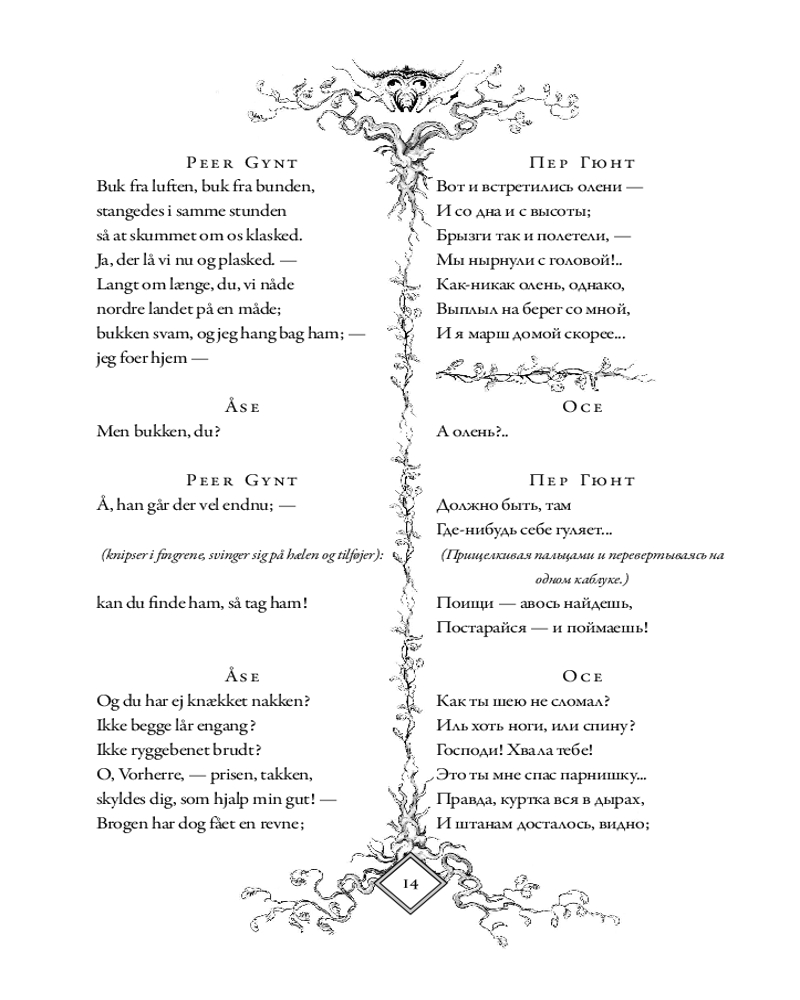 Peer Gynt
Buk fra luften, buk fra bunden,
stangedes i samme stunden
så at skummet om os klasked.
Ja, der lå vi nu og plasked. —
Langt om længe, du, vi nåde
nordre landet på en måde;
bukken svam, og jeg hang bag ham; —
jeg foer hjem —
Åse
Men bukken, du?
Peer Gynt
Å, han går der vel endnu; —
(knipser i fingrene, svinger sig på hælen og tilføjer):
kan du finde ham, så tag ham!
Åse
Og du har ej knækket nakken?
Ikke begge lår engang?
Ikke ryggebenet brudt?
O, Vorherre, — prisen, takken,
skyldes dig, som hjalp min gut! —
Brogen har dog fået en revne;
Пер Гюнт
Вот и встретились олени —
И со дна и с высоты;
Брызги так и полетели, —
Мы нырнули с головой!..
Как-никак олень, однако,
Выплыл на берег со мной,
И я марш домой скорее...
Осе
А олень?..
Пер Гюнт
Должно быть, там
Где-нибудь себе гуляет...
(Прищелкивая пальцами и перевертываясь на
одном каблуке.)
Поищи — авось найдешь,
Постарайся — и поймаешь!
Осе
Как ты шею не сломал?
Иль хоть ноги, или спину?
Господи! Хвала тебе!
Это ты мне спас парнишку...
Правда, куртка вся в дырах,
И штанам досталось, видно;
14